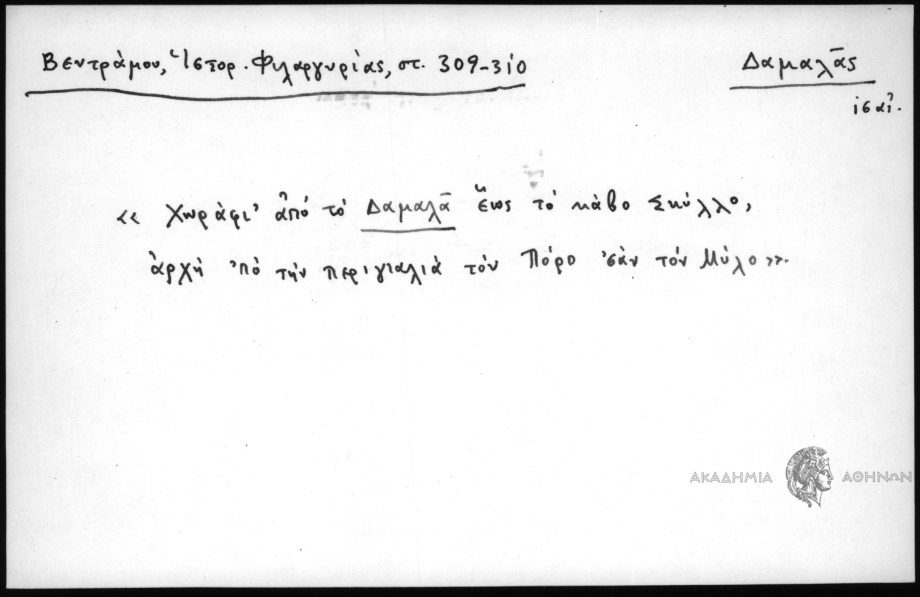 Βεντράμου, Ἱστορ. Φιλαργυρίας, στ. 309-310
Δαμαλᾶς
ἰσαἶ.
«Χωράφι' ἀπό τό Δαμαλᾶ ἕως τό κάβο Σκύλλο,
ἀρχή 'πό τήν περιγιαλιά τόν Πόρο 'σάν τόν Μύλο».
ΑΚΑΔΗΜΙΑ ΑΘΗΝΩΝ